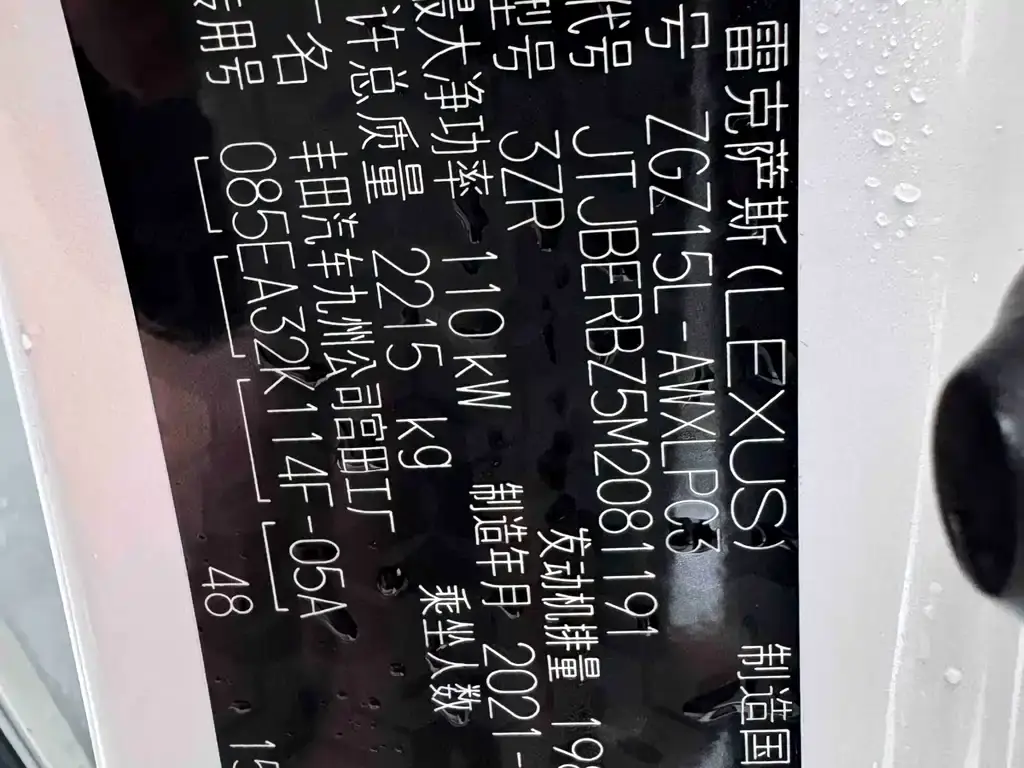 雷克萨斯(LEXUS) 制造国
号 ZGZ15L-AWXLPC3
代号 JTJBERBZ5M2081191
型号 3ZR 发动机排量 198
最大净功率 110kW 制造年月 2021-
许总质量 2215 kg 乘坐人数
名 丰田汽车九州公司宫田工厂
专用号 085EA32K114F-05A
48 15